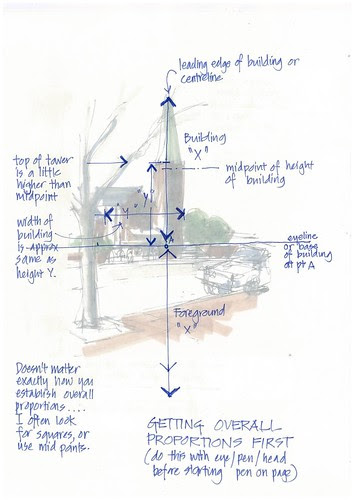 leading edge of building or
centreline
Building
"X"
top of tower
is a little
higher than
midpoint
midpoint of height
of building
"Y"
"Y"
width of
building
is approx
same as
height Y.
A
eyeline
or base
of building
at pt A
Foreground
"X"
Doesn't matter
exactly how you
establish overall
proportions....
I often look
for squares, or
use mid points.
GETTING OVERALL
PROPORTIONS FIRST
(do this with eye/pen/head
before starting pen on page)